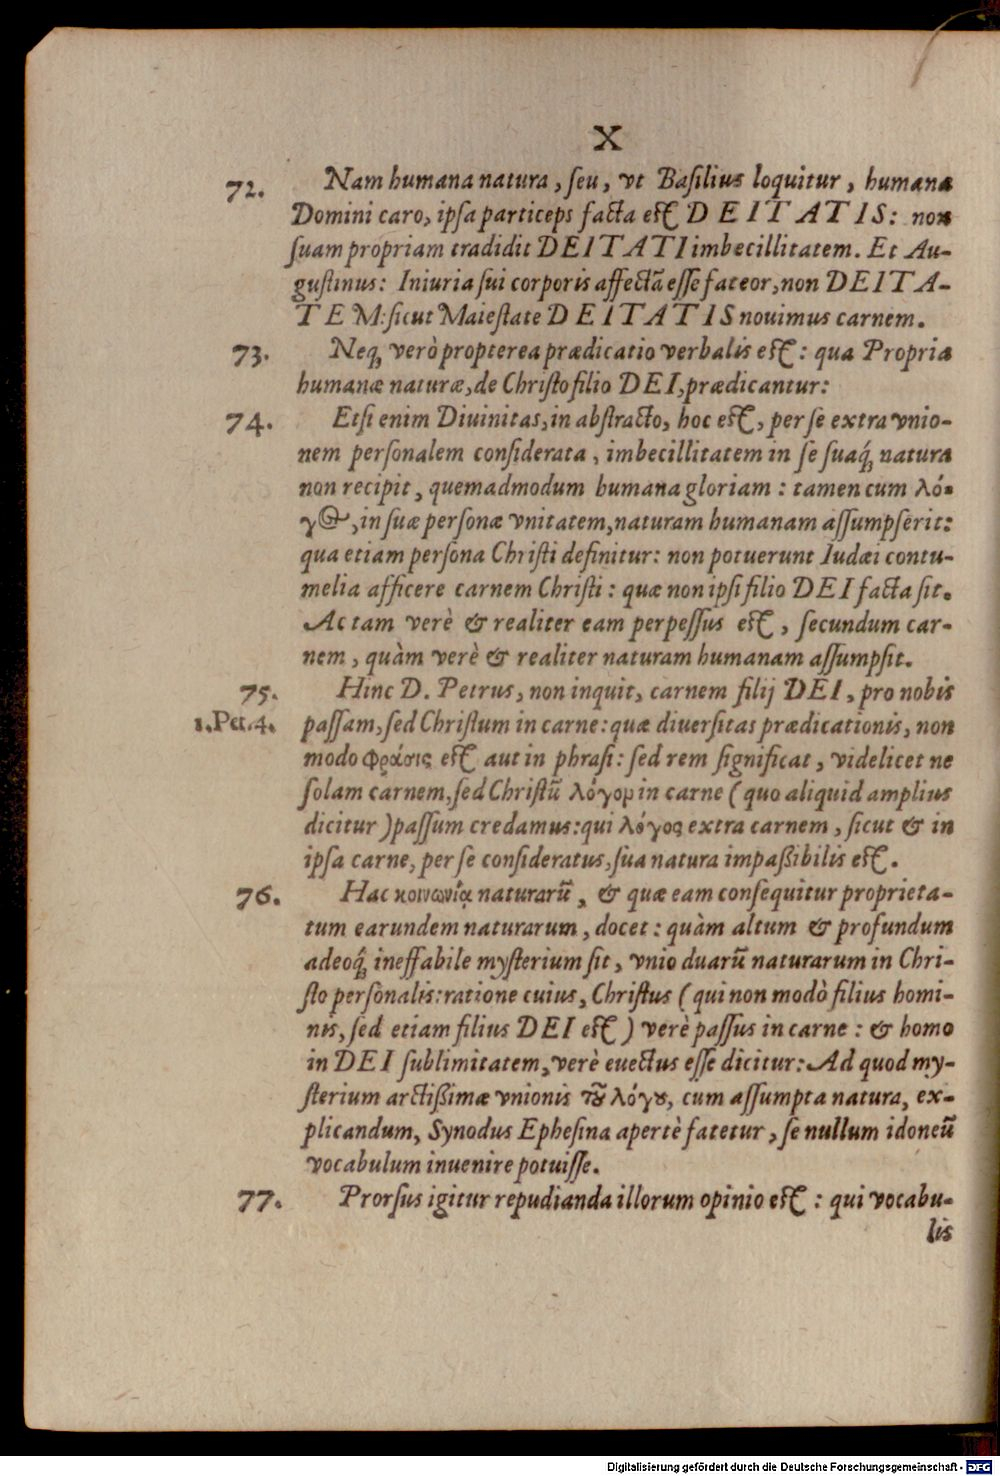 X
72. Nam humana natura, ſeu, vt Baſilius loquitur, humana
Domini caro, ipſa particeps facta eſt DEITATIS: non
ſuam propriam tradidit DEITATI imbecillitatem. Et Au-
guſtinus: Iniuria ſui corporis affectã eſſe fateor, non DEITA-
TEM: ſicut Maieſtate DEITATIS nouimus carnem.
73. Neq́; verò propterea prædicatio verbalis eſt: qua Propria
humanæ naturæ, de Chriſto filio DEI, prædicantur:
74. Etſi enim Diuinitas, in abſtracto, hoc eſt, per ſe extra vnio-
nem perſonalem conſiderata, imbecillitatem in ſe ſuaq́; natura
non recipit, quemadmodum humana gloriam: tamen cum λό-
γος, in ſuæ perſonæ vnitatem, naturam humanam aſſumpſerit:
qua etiam perſona Chriſti definitur: non potuerunt Iudæi contu-
melia afficere carnem Chriſti: quæ non ipſi filio DEI facta ſit.
Ac tam verè & realiter eam perpeſſus eſt, ſecundum car-
nem, quàm verè & realiter naturam humanam aſſumpſit.
75. Hinc D. Petrus, non inquit, carnem filij DEI, pro nobis
1.Pet.4. paſſam, ſed Chriſtum in carne: quæ diuerſitas prædicationis, non
modo φράσις eſt aut in phraſi: ſed rem ſignificat, videlicet ne
ſolam carnem, ſed Chriſtũ λόγον in carne (quo aliquid amplius
dicitur) paſſum credamus: qui λόγος extra carnem, ſicut & in
ipſa carne, per ſe conſideratus, ſua natura impaßibilis eſt.
76. Hac κοινωνίᾳ naturarũ, & quæ eam conſequitur proprieta-
tum earundem naturarum, docet: quàm altum & profundum
adeoq́; ineffabile myſterium ſit, vnio duarũ naturarum in Chri-
ſto perſonalis: ratione cuius, Chriſtus (qui non modò filius homi-
nis, ſed etiam filius DEI eſt) verè paſſus in carne: & homo
in DEI ſublimitatem, verè euectus eſſe dicitur: Ad quod my-
ſterium arctißimæ vnionis τοῦ λόγου, cum aſſumpta natura, ex-
plicandum, Synodus Epheſina apertè fatetur, ſe nullum idoneũ
vocabulum inuenire potuiſſe.
77. Prorſus igitur repudianda illorum opinio eſt: qui vocabu-
lis
Digitalisierung gefördert durch die Deutsche Forschungsgemeinschaft - DFG